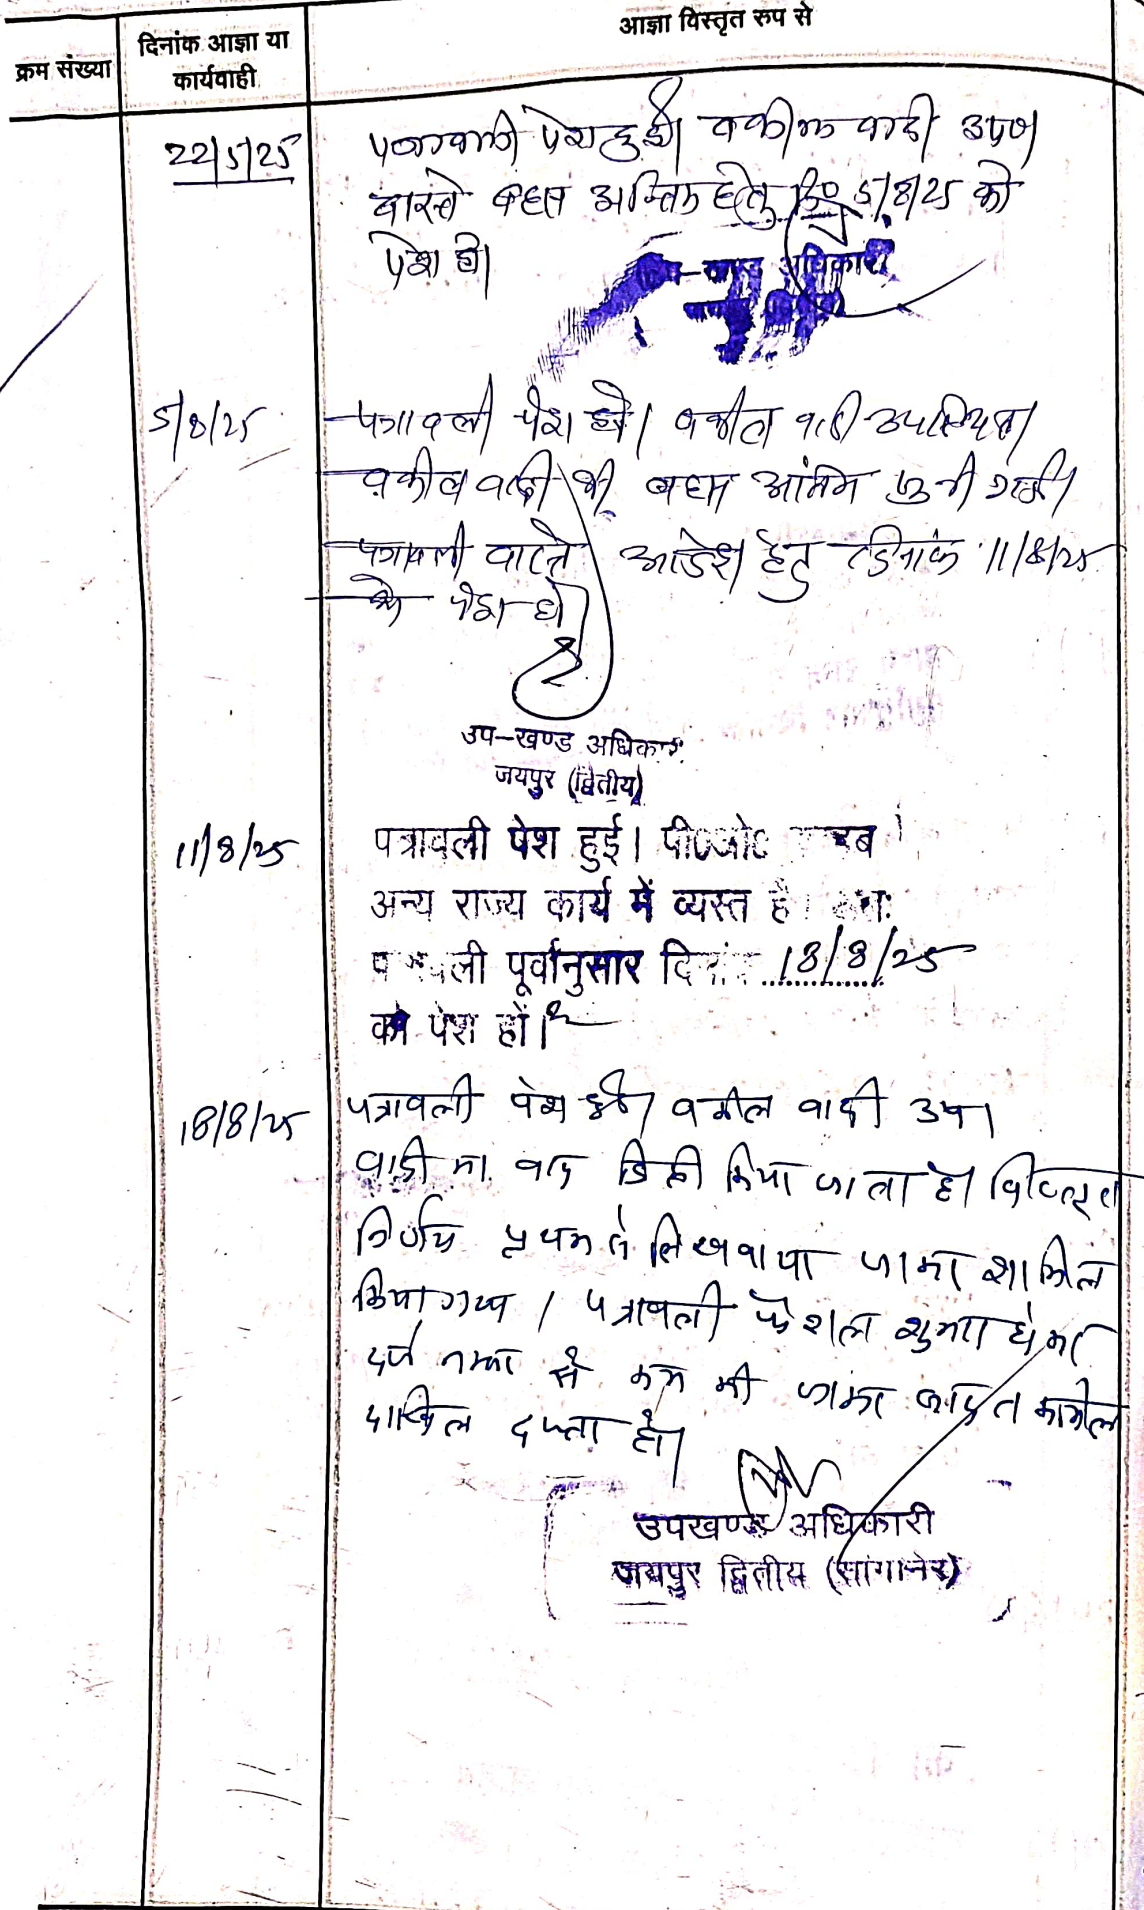 आज्ञा विस्तृत रुप से
दिनांक आज्ञा या
क्रम संख्या
कार्यवाही
22/5/25
पत्रावली पेश हुई। वकील वादी उप०।
वास्ते बहस अन्तिम हेतु दि० 5/8/25 को
पेश हो।
अधिकारी
5/8/25
पत्रावली पेश हुई। वकील वादी उपस्थित।
वकील वादी की बहस अंतिम सुनी गई।
पत्रावली वास्ते आदेश हेतु दिनांक 11/8/25
को पेश हो।
उप-खण्ड अधिकारी
जयपुर (द्वितीय)
11/8/25
पत्रावली पेश हुई। पी०ओ०
अन्य राज्य कार्य में व्यस्त है।
पत्रावली पूर्वानुसार दिनांक 18/8/25
को पेश हों।
18/8/25
पत्रावली पेश हुई। वकील वादी उप।
वादी का वाद डिक्री किया जाता है। विस्तृत
निर्णय पृथक से लिखवाया जाकर शामिल
किया गया। पत्रावली फैशल शुमार होकर
दर्ज नम्बर से कम की जाकर बाद तकमील
दाखिल दफ्तर हो।
उपखण्ड अधिकारी
जयपुर द्वितीय (सांगानेर)